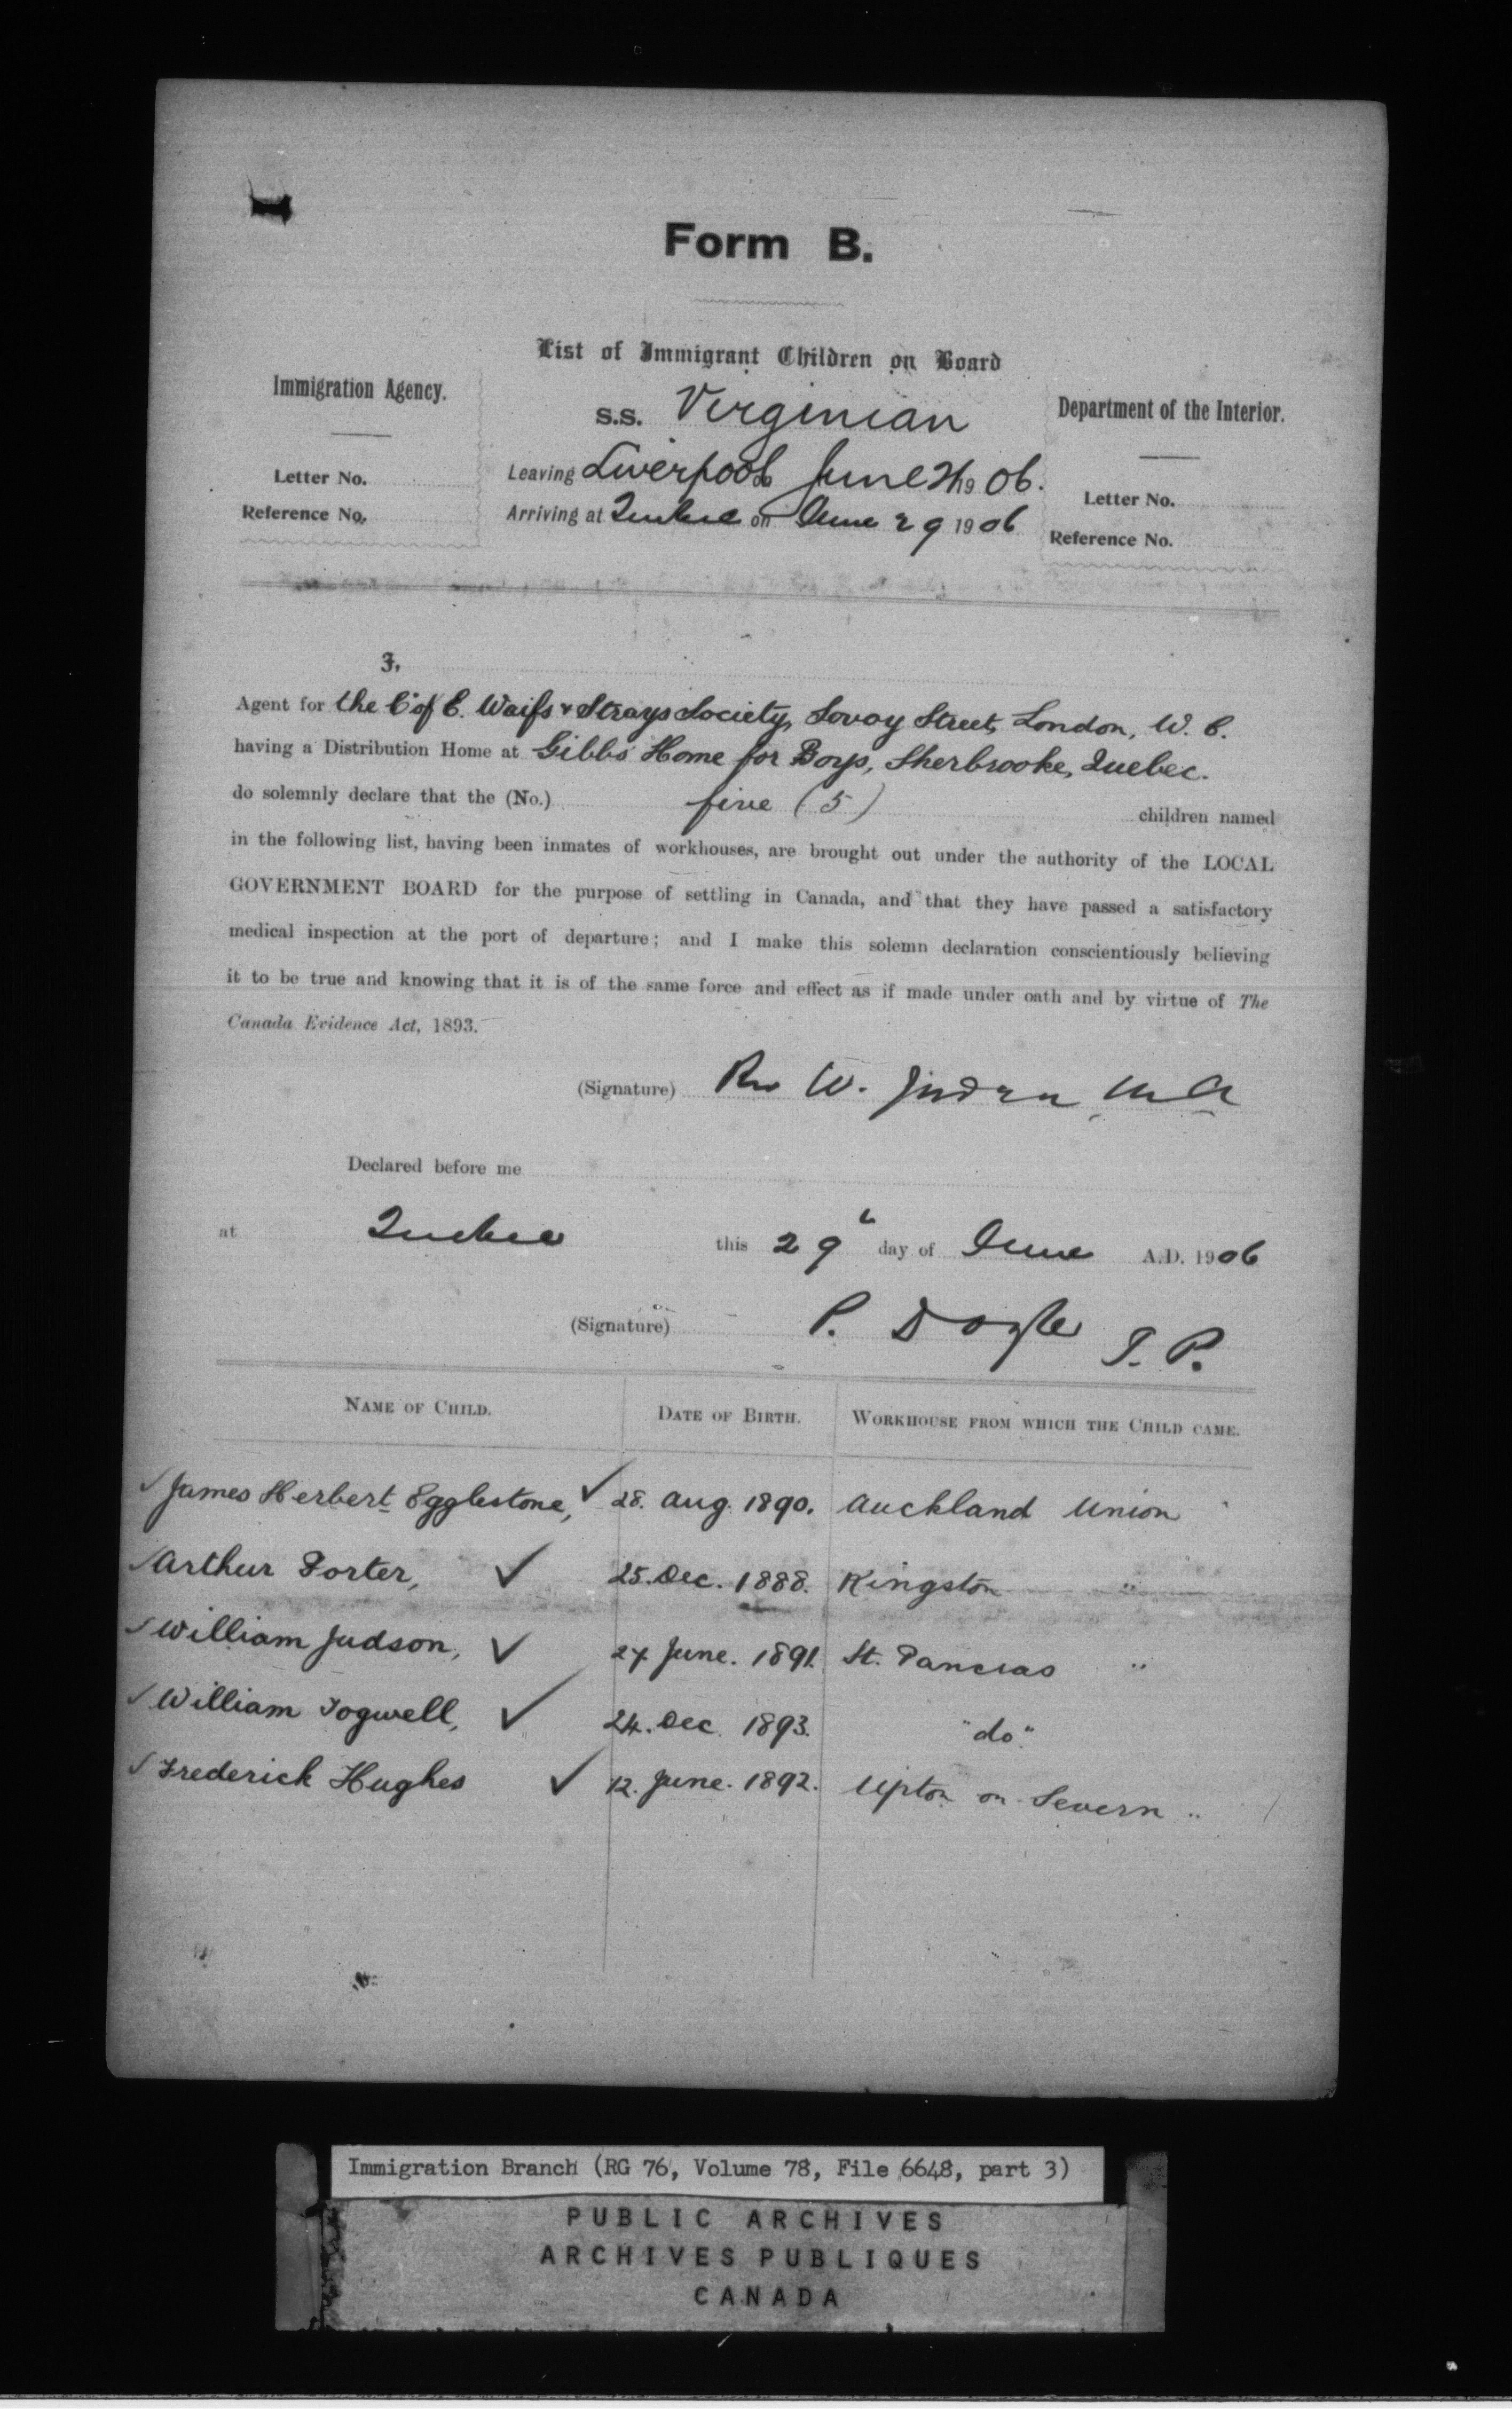 Form B.
List of Immigrant Children on Board
Immigration Agency.
S.S. Virginian
Department of the Interior.
Letter No.
Leaving Liverpool June 21 1906.
Letter No.
Reference No.
Arriving at Quebec on June 29 1906
Reference No.
I,
Agent for the C. of E. Waifs & Strays Society, Savoy Street, London, W. C.
having a Distribution Home at Gibbs Home for Boys, Sherbrooke, Quebec.
do solemnly declare that the (No.) five (5) children named
in the following list, having been inmates of workhouses, are brought out under the authority of the LOCAL
GOVERNMENT BOARD for the purpose of settling in Canada, and that they have passed a satisfactory
medical inspection at the port of departure; and I make this solemn declaration conscientiously believing
it to be true and knowing that it is of the same force and effect as if made under oath and by virtue of The
Canada Evidence Act, 1893.
(Signature) Rev W. MA
Declared before me
at Quebec this 29th day of June A.D. 1906
(Signature) P. Doyle J. P.
NAME OF CHILD. DATE OF BIRTH. WORKHOUSE FROM WHICH THE CHILD CAME.
James Herbert Egglestone, 28. Aug. 1890. Auckland Union
Arthur Porter, 25. Dec. 1888. Kingston "
William Judson, June. 1891. St. Pancras "
William Togwell, 24. Dec. 1893. "do"
Frederick Hughes 12. June. 1892. Upton on Severn "
Immigration Branch (RG 76, Volume 78, File 6648, part 3)
PUBLIC ARCHIVES
ARCHIVES PUBLIQUES
CANADA